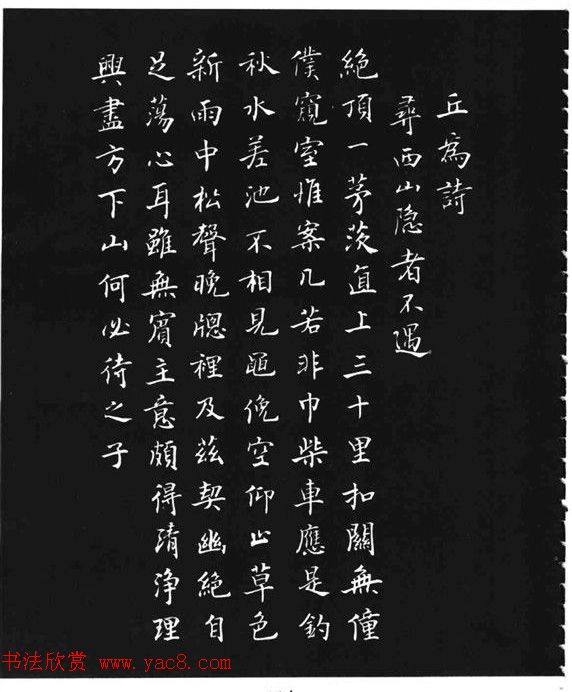 丘為詩
尋西山隐者不遇
絕頂一茅茨直上三十里扣關無僮
僕窺室惟案几若非巾柴車應是釣
秋水差池不相見黽俛空仰止草色
新雨中松聲晚窻裡及茲契幽絕自
足蕩心耳雖無賓主意頗得清淨理
興盡方下山何必待之子
书法欣赏 www.yac8.com